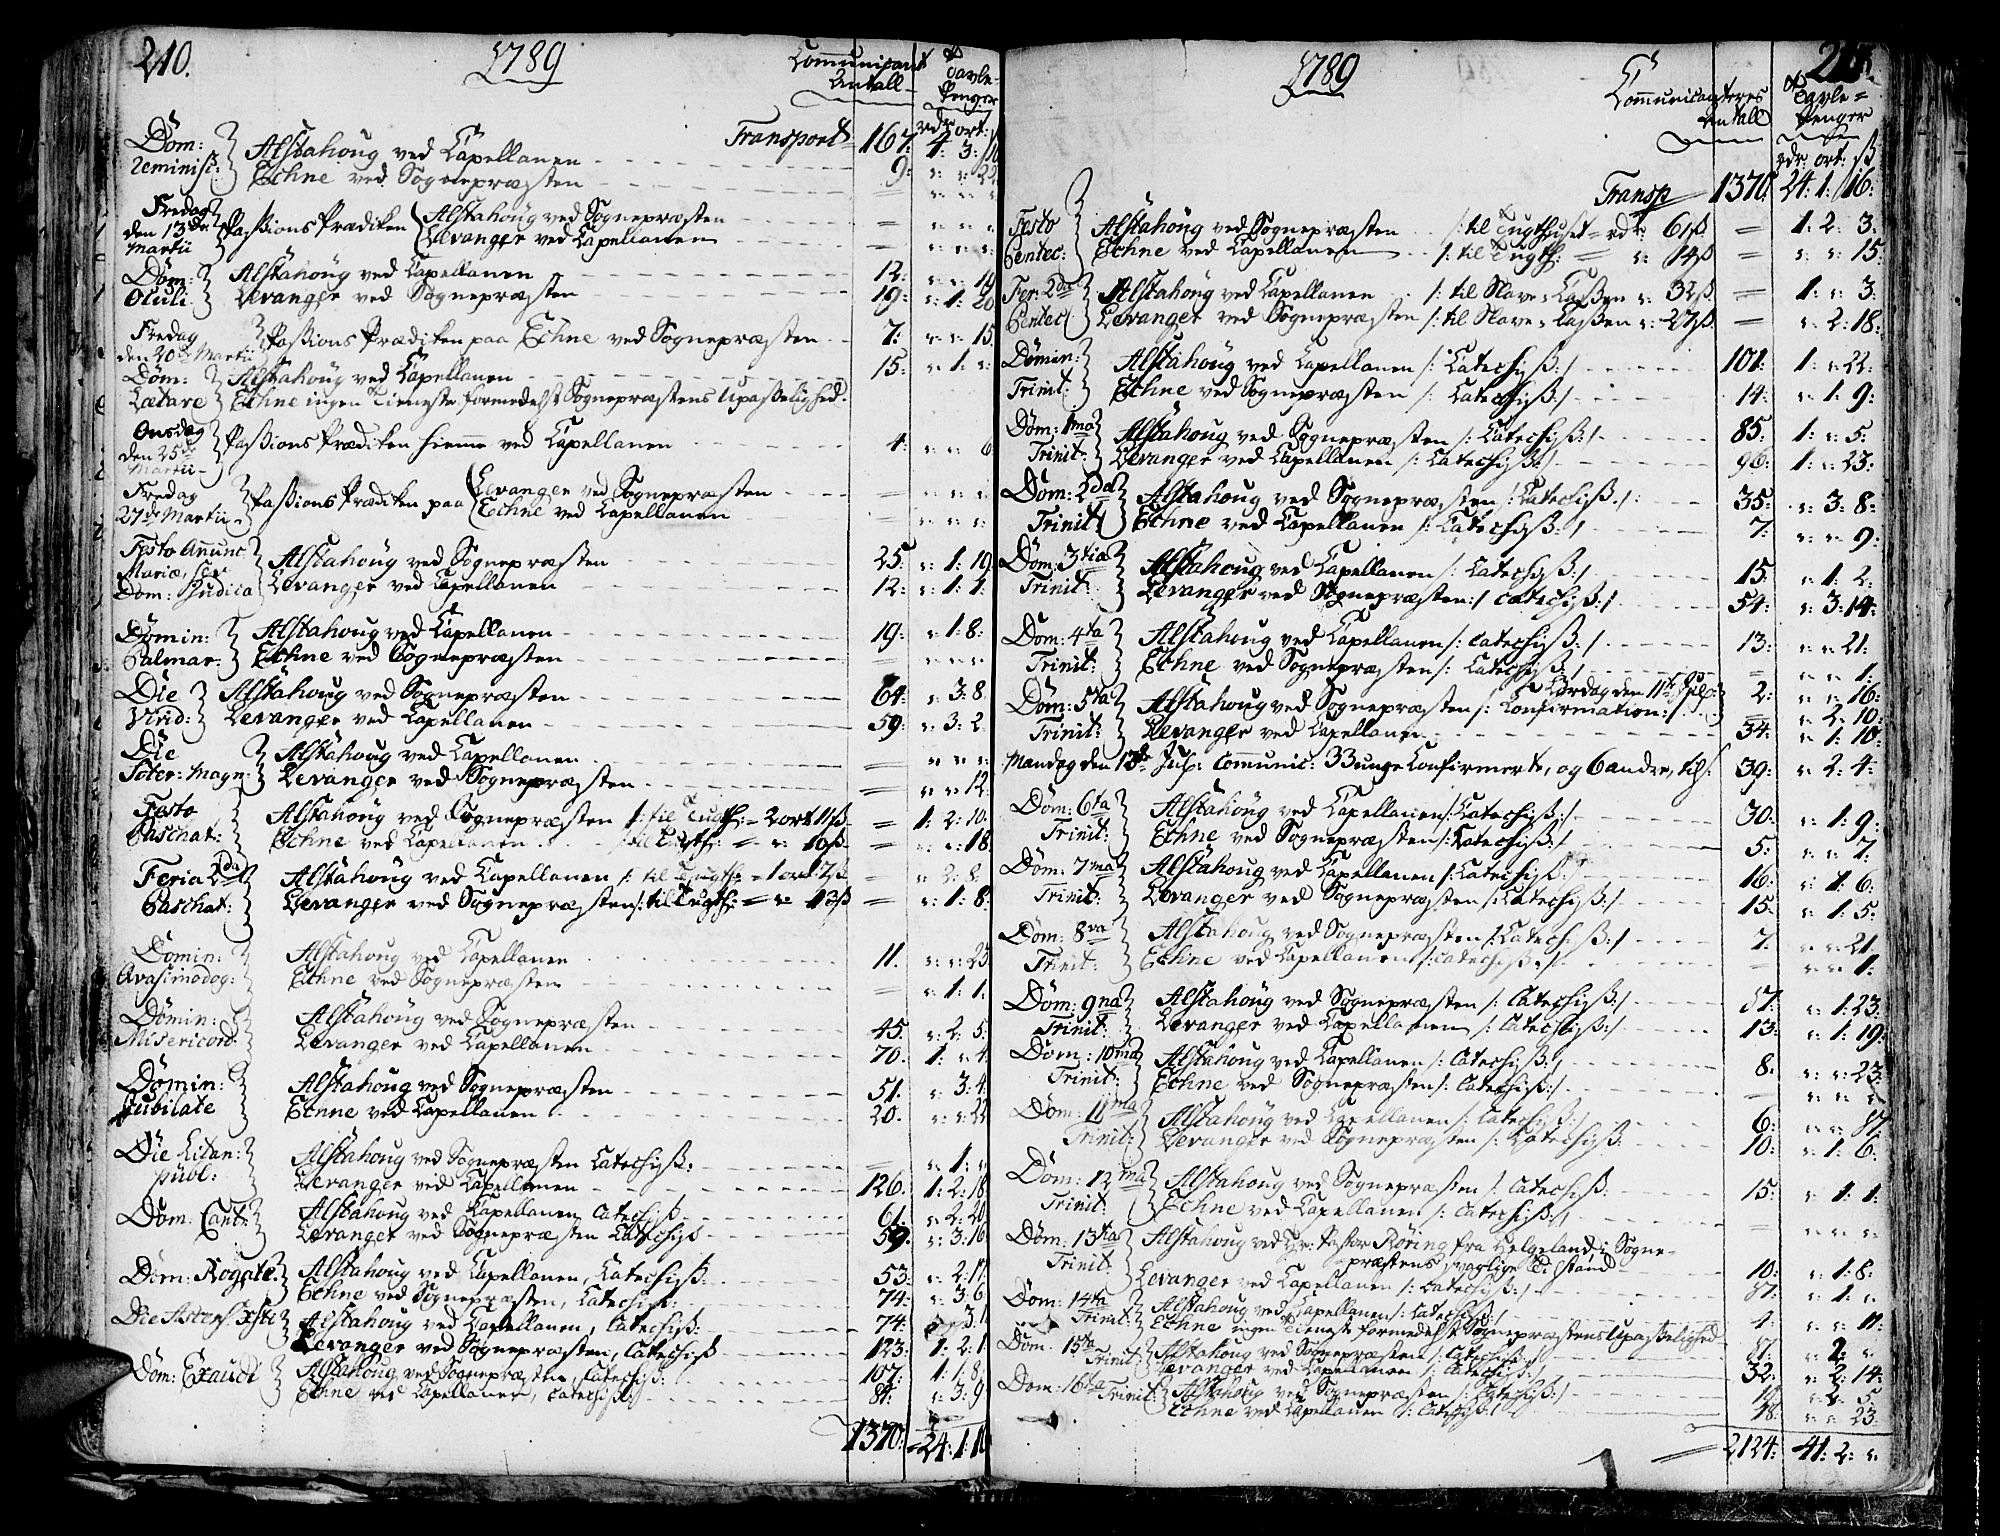 210.
1789
Communicant Antall
Tavle-Penger
rdr ort: ß
Transport 167: 4: 3: 10
Dom: Reminisc: Alstahoug ved Capellanen 9:
Echne ved Sognepræsten
Fredag den 13de Martii Passions Prædiken Alstahoug ved Sognepræsten
Levanger ved Capellanen
Dom: Oculi Alstahoug ved Capellanen 12: 19
Levanger ved Sognepræsten 19: 1: 20
Fredag den 20de Martii Passions Prædiken paa Echne ved Sognepræsten 7: 15
Dom: Lætare Alstahoug ved Capellanen 15: 1:
Echne ingen Tieneste formedelst Sognepræstens Upasselighed.
Onsdag den 25de Martii Passions Prædiken hiemme ved Capellanen 4: 6
Fredag 27de Martii Passions Prædiken paa Levanger ved Sognepræsten
Echne ved Capellanen
Festo Anunc Mariæ, sev Dom: Judica Alstahoug ved Sognepræsten 25: 1: 19
Levanger ved Capellanen 12: 1: 1:
Domin: Palmar: Alstahoug ved Capellanen 19: 1: 8:
Echne ved Sognepræsten
Die Virid: Alstahoug ved Sognepræsten 64: 3: 8
Levanger ved Capellanen 59: 3: 2
Die Soter: Magn: Alstahoug ved Capellanen
Levanger ved Sognepræsten 12
Festo Paschat: Alstahoug ved Sognepræsten /: til Tugth: 2 ort 11ß = 1: 2: 10
Echne ved Capellanen /: til Tugth: 10ß = 18
Feria 2da Paschat: Alstahoug ved Capellanen /: til Tugth: 1 ort 7ß = 2: 8
Levanger ved Sognepræsten /: til Tugth: 13ß = 1: 8:
Domin: Qvasimodog: Alstahoug ved Capellanen 11. 23
Echne ved Sognepræsten = 1: 1:
Domin: Misericord: Alstahoug ved Sognepræsten 45. 2: 5:
Levanger ved Capellanen 70. 1: 4.
Domin: Jubilate Alstahoug ved Sognepræsten 51. 3: 4.
Echne ved Capellanen 20. 22
Die Litan: publ: Alstahoug ved Sognepræsten Catechiß: = 1:
Levanger ved Capellanen 126. 1: 2: 18
Dom: Cant: Alstahoug ved Capellanen Catechiß 61. 2: 20
Levanger ved Sognepræsten Catechiß 59. 3: 16
Dom: Rogate Alstahoug ved Capellanen, Catechiß: 53: 2: 17
Echne ved Sognepræsten, Catechiß: 74: 3: 6
Die Ascens: Xsti Alstahoug ved Capellanen, Catechiß: 74: 3: 1
Levanger ved Sognepræsten, Catechiß 123: 1: 2: 1
Dom: Exaudi Alstahoug ved Sognepræsten, Catechiß: 107: 1: 1: 8
Echne ved Capellanen, Catechiß: 81: 3: 9
1370: 24: 1: 16
1789
Communicanteres Antall
Tavle-Penger
rdr: ort: ß
Transp 1370 24: 1: 16:
Festo Pentec: Alstahoug ved Sognepræsten /: til Tugthuset rdr: 61ß = 1: 2: 3:
Echne ved Capellanen /: til Tugth: 14ß = 15:
Fer: 2da Pentec: Alstahoug ved Capellanen /: til Slave-Cassen 32ß = 1: 3:
Levanger ved Sognepræsten /: til Slave-Cassen 27ß = 2: 18:
Domin: Trinit: Alstahoug ved Capellanen /: Catechiß:/ 101: 1: 22:
Echne ved Sognepræsten /: Catechiß:/ 14: 1: 9:
Dom: 1ma Trinit: Alstahoug ved Sognepræsten /: Catechiß:/ 85: 1: 5:
Levanger ved Capellanen /: Catechiß:/ 96: 1: 23:
Dom: 2da Trinit: Alstahoug ved Sognepræsten /: Catechiß:/ 35: 3: 8:
Echne ved Capellanen /: Catechiß:/ 7: 9:
Dom: 3tia Trinit: Alstahoug ved Capellanen /: Catechiß:/ 15. 1: 2:
Levanger ved Sognepræsten /: Catechiß:/ 54: 3: 14:
Dom: 4ta Trinit: Alstahoug ved Capellanen /: Catechiß:/ 13: 21:
Echne ved Sognepræsten /: Catechiß:/ 1:
Dom: 5ta Trinit: Alstahoug ved Sognepræsten /: Confirmation:/ Lørdag den 11te Julj: 2: 16:
2: 10:
Levanger ved Capellanen 34: 1: 10:
Mandag den 13de Julj: Communic: 33 unge Confirmerte, og 6 andre, tils: 39: 2: 4:
Dom: 6ta Trinit: Alstahoug ved Capellanen /: Catechiß:/ 30. 1: 9:
Echne ved Sognepræsten /: Catechiß:/ 5: 7:
Dom: 7ma Trinit: Alstahoug ved Capellanen /: Catechiß:/ 16: 1: 6:
Levanger ved Sognepræsten /: Catechiß:/ 15: 1: 5:
Dom: 8va Trinit: Alstahoug ved Sognepræsten /: Catechiß:/ 7: 21:
Echne ved Capellanen /: Catechiß:/ 1:
Dom: 9na Trinit: Alstahoug ved Sognepræsten /: Catechiß:/ 1: 23:
Levanger ved Capellanen /: Catechiß:/ 13: 1: 19:
Dom: 10ma Trinit: Alstahoug ved Capellanen /: Catechiß:/ 8. 23:
Echne ved Sognepræsten /: Catechiß:/
Dom: 11ma Trinit: Alstahoug ved Capellanen /: Catechiß:/ 6:
Levanger ved Sognepræsten /: Catechiß: 10: 1: 6:
Dom: 12ma Trinit: Alstahoug ved Sognepræsten /: Catechiß: 15: 1: 1:
Echne ved Capellanen /: Catechiß:/
Dom: 13tia Trinit: Alstahoug ved Hr: Pastor Röring fra Helgeland i Sogne-
præstens svaglige Tilstand 10: 1: 8:
Levanger ved Capellanen /: Catechiß: 1:
Dom: 14ta Trinit: Alstahoug ved Capellanen /: Catechiß:/ 1: 11:
Echne ingen Tieneste formedelst Sognepræstens Upasselighed
Dom: 15ta Trinit: Alstahoug ved Sognepræsten /: Catechiß:/ 2:
Levanger ved Capellanen /: Catechiß:/ 32: 2: 14:
Dom: 16ta Trinit: Alstahoug ved Sognepræsten /: Catechiß:/ 18: 5:
Echne ved Capellanen /: Catechiß:/ 18. 23:
2124: 41: 2: